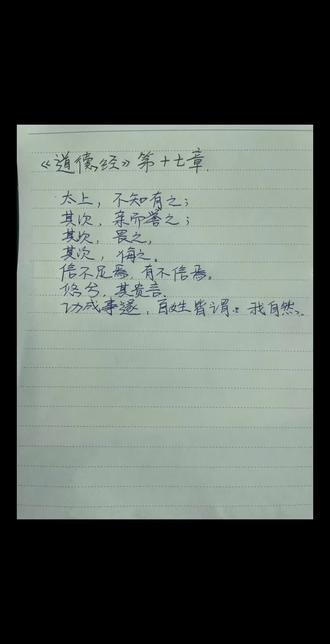 《道德经》第十七章.
太上，不知有之；
其次，亲而誉之；
其次，畏之，
其次，侮之。
信不足焉，有不信焉。
悠兮，其贵言.
功成事遂，百姓皆谓：我自然.